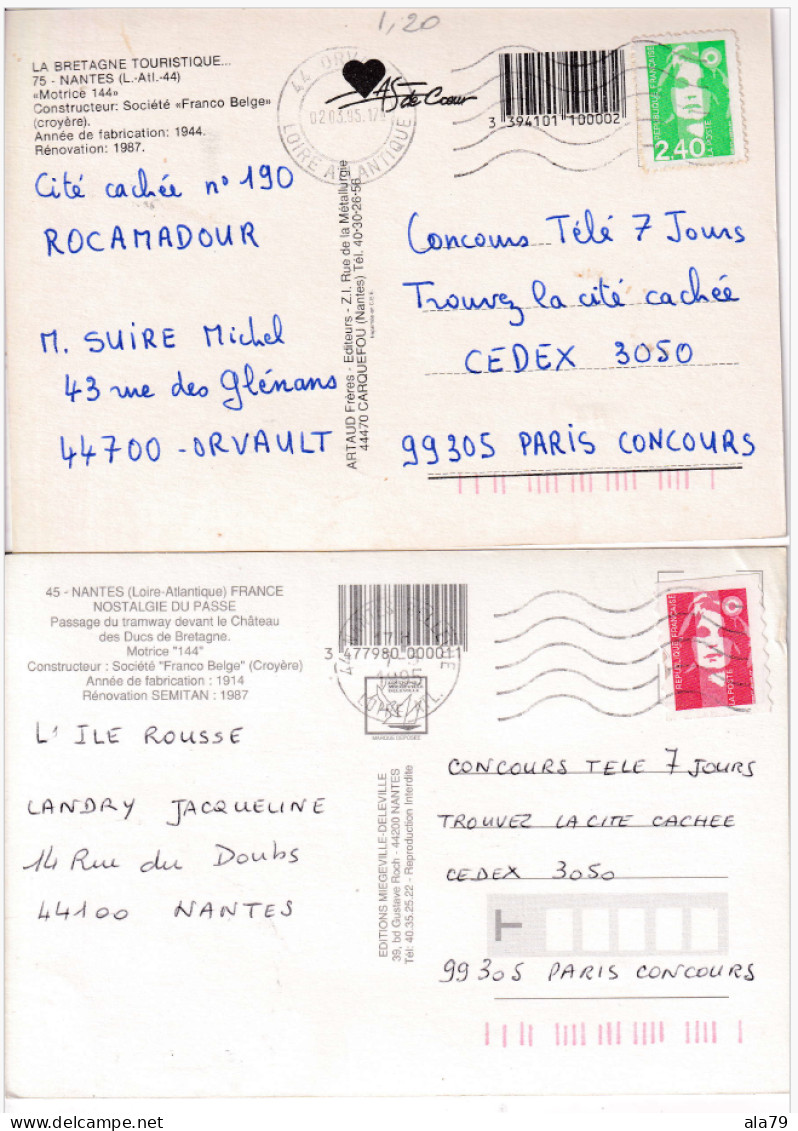 1,20
LA BRETAGNE TOURISTIQUE...
75 - NANTES (L.-Atl.-44)
«Motrice 144»
Constructeur: Société «Franco Belge»
(croyère).
Année de fabrication: 1944.
Rénovation: 1987.
44 ORV
02.03.95.17
LOIRE ATLANTIQUE
AS de Cœur
3 394101 100002
REPUBLIQUE FRANÇAISE
2,40
LA POSTE
Cité cachée n° 190
ROCAMADOUR
M. SUIRE Michel
43 rue des Glénans
44700 - ORVAULT
ARTAUD Frères - Editeurs - Z.I. Rue de la Métallurgie
44470 CARQUEFOU (Nantes) Tél. 40-30-26-56
Concours Télé 7 Jours
Trouvez la cité cachée
CEDEX 3050
99305 PARIS CONCOURS
45 - NANTES (Loire-Atlantique) FRANCE
NOSTALGIE DU PASSE
Passage du tramway devant le Château
des Ducs de Bretagne.
Motrice "144"
Constructeur : Société "Franco Belge" (Croyère)
Année de fabrication : 1914
Rénovation SEMITAN : 1987
3 477980 000011
44 NANTES
17 H
1995
LOIRE ATL.
MARQUE DEPOSEE
REPUBLIQUE FRANÇAISE
LA POSTE
L'ILE ROUSSE
LANDRY JACQUELINE
14 Rue du Doubs
44100 NANTES
EDITIONS MIEGEVILLE-DELEVILLE
39, bd Gustave Roch - 44200 NANTES
Tél: 40.35.25.22 - Reproduction Interdite
CONCOURS TELE 7 JOURS
TROUVEZ LA CITE CACHEE
CEDEX 3050
T
99305 PARIS CONCOURS
Delcampe.net
ala79